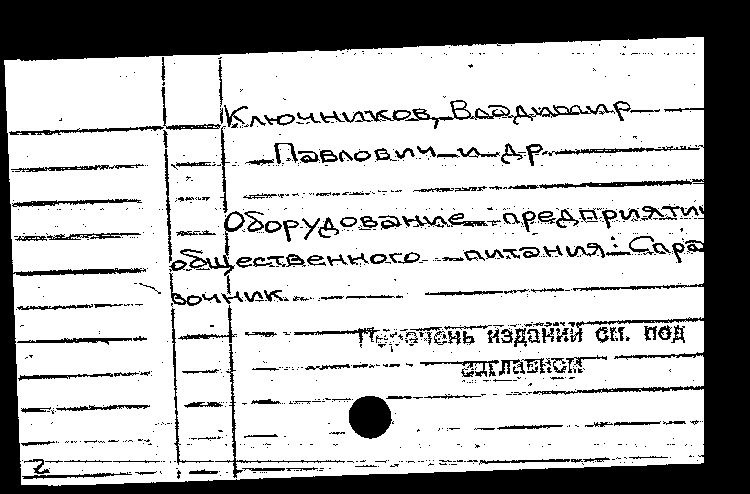 Ключников, Владимир
Павлович и др.
Оборудование предприяти
общественного питания: Спра
вочник
Перечень изданий см. под
заглавном
2